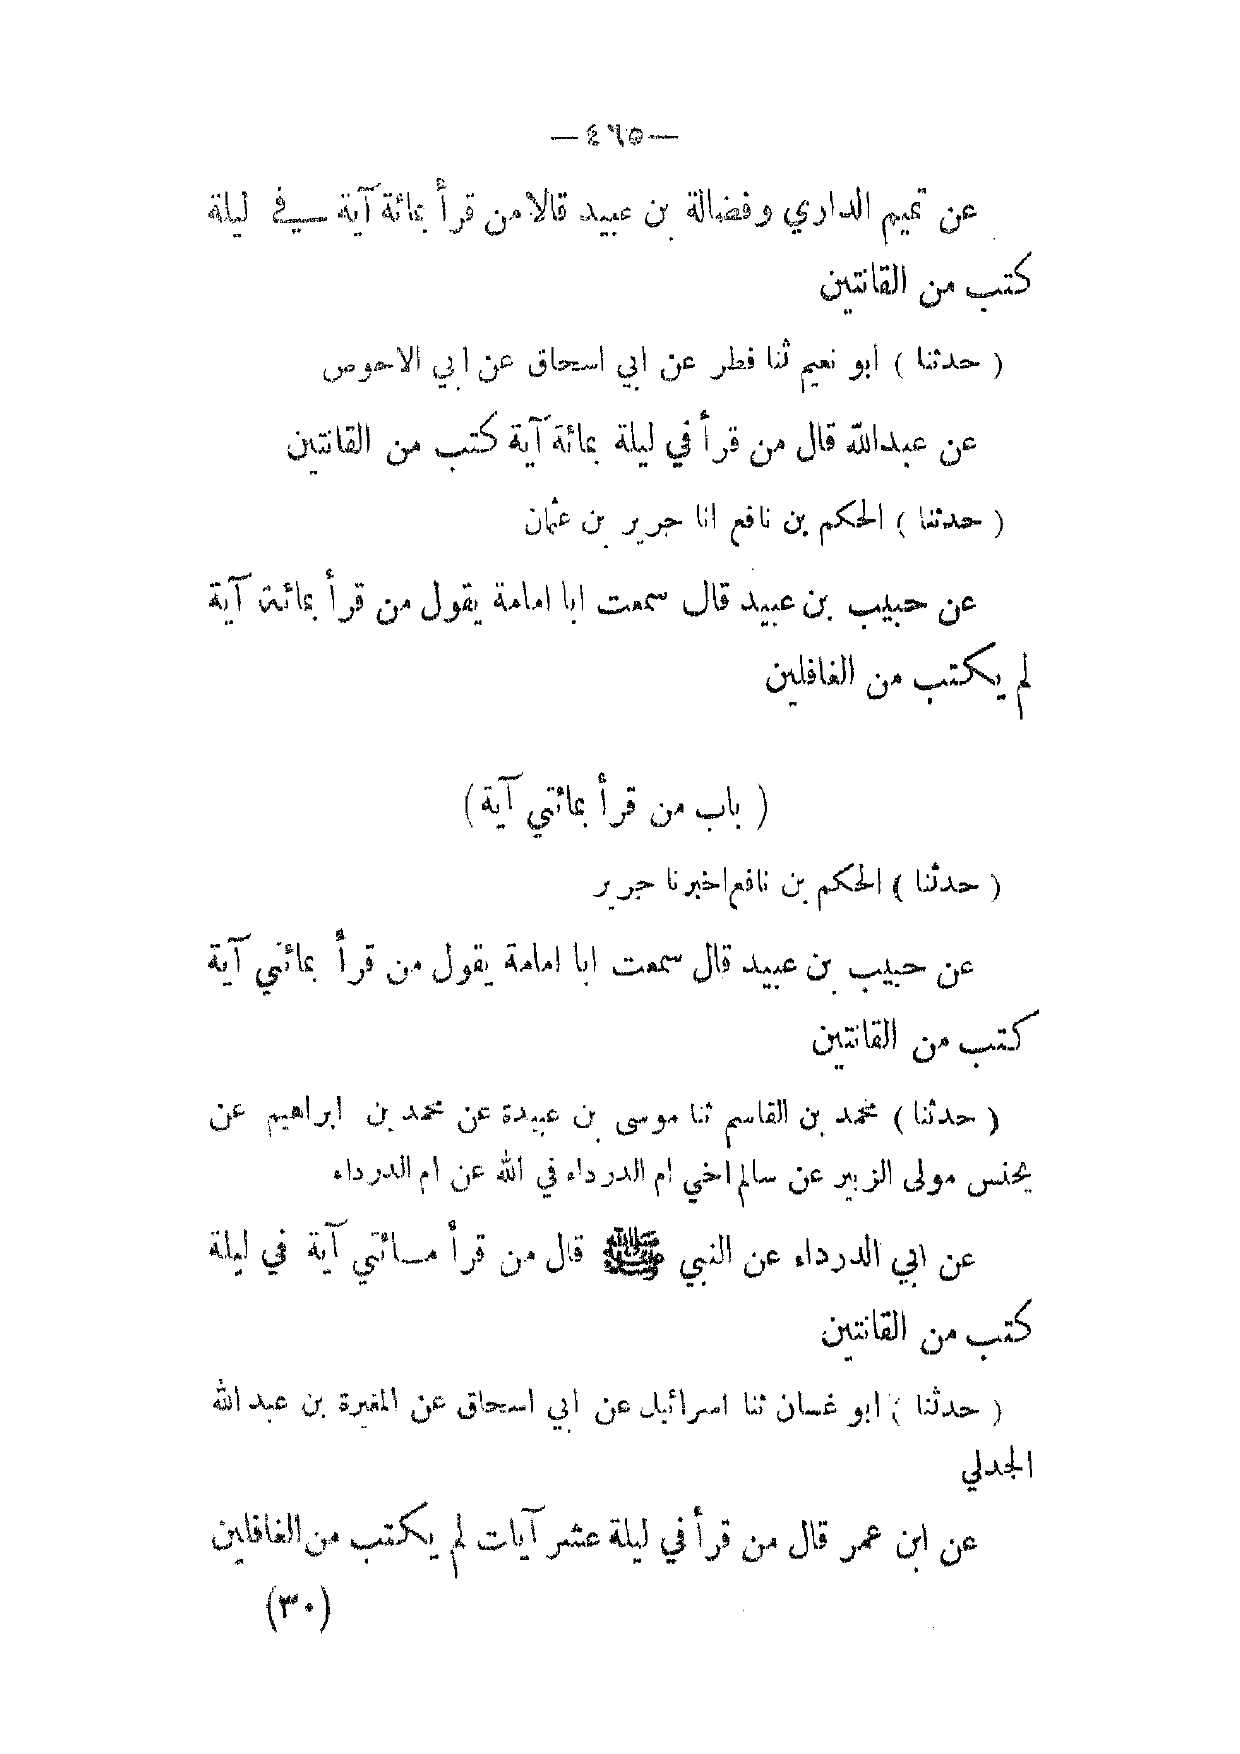 —٤٦٥—
عن تميم الداري وفضالة بن عبيد قالا من قرأ بمائة آية في ليلة
كتب من القانتين
( حدثنا ) أبو نعيم ثنا فطر عن ابي اسحاق عن ابي الاحوص
عن عبدالله قال من قرأ في ليلة بمائة آية كتب من القانتين
( حدثنا ) الحكم بن نافع انا جرير بن عثمان
عن حبيب بن عبيد قال سمعت ابا امامة يقول من قرأ بمائة آية
لم يكتب من الغافلين
( باب من قرأ بمائتي آية )
( حدثنا ) الحكم بن نافع اخبرنا جرير
عن حبيب بن عبيد قال سمعت ابا امامة يقول من قرأ بمائتي آية
كتب من القانتين
( حدثنا ) محمد بن القاسم ثنا موسى بن عبيدة عن محمد بن ابراهيم عن
يحنس مولى الزبير عن سالم اخي ام الدرداء في الله عن ام الدرداء
عن ابي الدرداء عن النبي ﷺ قال من قرأ مائتي آية في ليلة
كتب من القانتين
( حدثنا ) ابو غسان ثنا اسرائيل عن ابي اسحاق عن المغيرة بن عبد الله
الجدلي
عن ابن عمر قال من قرأ في ليلة عشر آيات لم يكتب من الغافلين
(٣٠)